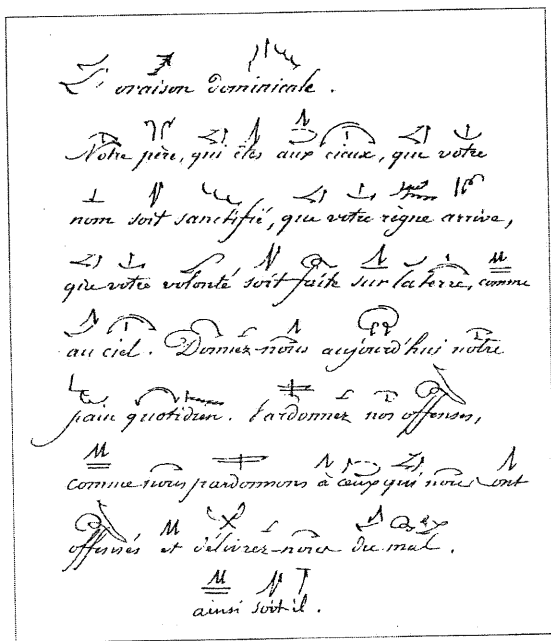 L'oraison dominicale.
Notre père, qui êtes aux cieux, que votre
nom soit sanctifié, que votre règne arrive,
que votre volonté soit faite sur la terre, comme
au ciel. Donnez-nous aujourd'hui notre
pain quotidien. Pardonnez nos offenses,
comme nous pardonnons à ceux qui nous ont
offensés et délivrez-nous du mal.
ainsi soit il.